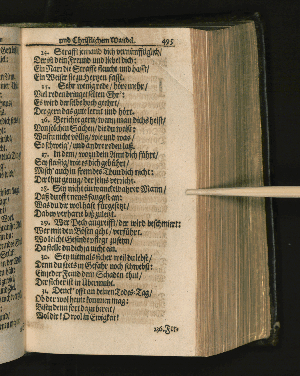 und Christlichen Wandel. 495
24. Strafft jemand dich vernünfftiglich/
Der ist dein Freund und liebet dich:
Ein Narr die Straffe fleucht und hasst/
Ein Weiser sie zu Hertzen fasst.
25. Sehr wenig rede/ höre mehr/
Viel reden bringet selten Ehr':
Es wird der selbe hoch geehrt/
Der gern das gute lernt und hört.
26. Berichte gern/ wann man dich
Von solchen Sachen/ die du weist:
Weist du nicht völlig/ wie und was/
So schweig/ und andre reden laß.
27. In dem/ wozu dein Amt dich führt/
Sey fleissig/ wie es dich gebührt/
Misch' auch in fremdes Thun dich nicht:
Der thut genug/ der seins verricht.
28. Sey nicht ein wanckelhaffter Mann/
Daß du offt neues fangest an:
Was du dir wol hast fürgesetzt/
Dabey verharre biß zuletzt.
29. Wer Pech angreifft/ der wird beschmiert:
Wer mit den Bösen geht/ verführt.
Wo leicht Gesunde pflegt zu seyn/
Da stelle du dich ja nicht ein.
30. Sey niemals sicher weil du lebst/
Denn du stets in Gefahr noch schwebst:
Ein jeder Feind dem Schaden thut/
Der sicher ist in Ubermuht.
31. Denck' offt an deinen Todes-Tag/
Ob der wol heut kommen mag:
Wol dir! O wol in Ewigkeit!